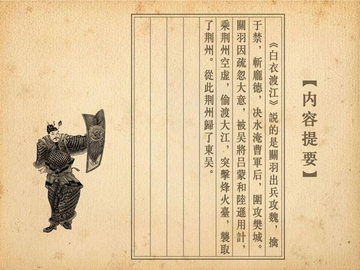 【内容提要】
《白衣渡江》説的是關羽出兵攻魏，擒
于禁，斬龐德，决水淹曹軍后，圍攻樊城。
關羽因疏忽大意，被吴將吕蒙和陸遜用計，
乘荆州空虚，偷渡大江，突擊烽火臺，襲取
了荆州。從此荆州歸了東吴。